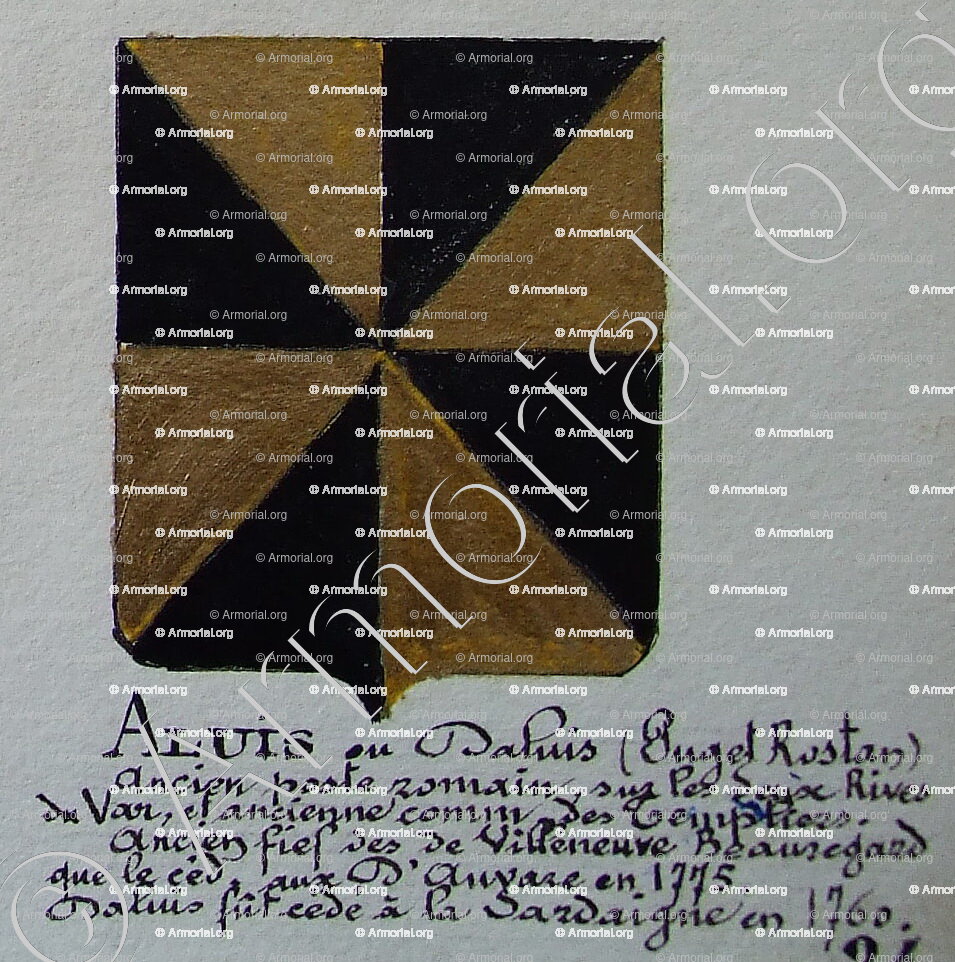 ALUIS ou Daluis (Puget Rostan)
Ancien poste romain, sur les deux Rives
du Var, et ancienne comm des Templiers
Ancien fief des de Villeneuve Beauregard
que le céd aux D'Auvare en 1775
Daluis fut cédé à la Sardaigne en 1760.
© Armorial.org